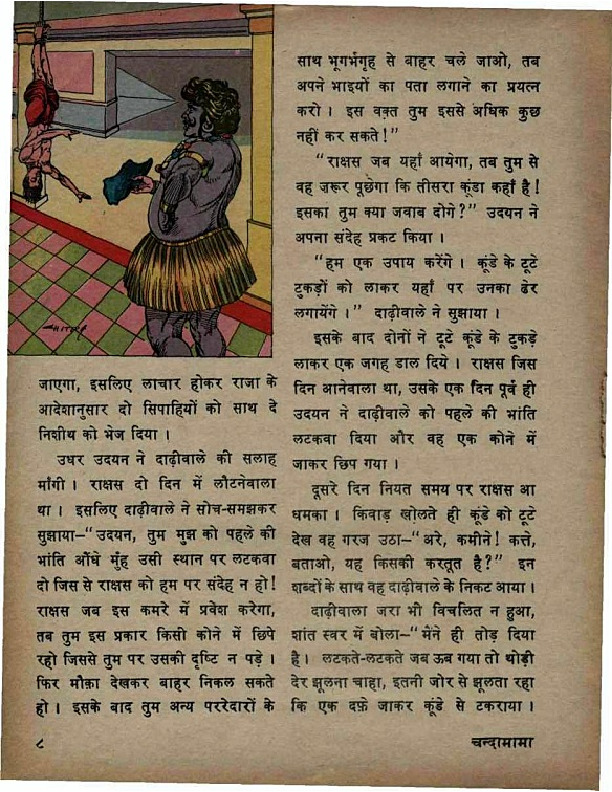 जाएगा, इसलिए लाचार होकर राजा के
आदेशानुसार दो सिपाहियों को साथ दे
निशीथ को भेज दिया ।
उधर उदयन ने दाढ़ीवाले की सलाह
माँगी । राक्षस दो दिन में लौटनेवाला
था । इसलिए दाढ़ीवाले ने सोच-समझकर
सुझाया–“उदयन, तुम मुझ को पहले की
भांति औंधे मुँह उसी स्थान पर लटकवा
दो जिस से राक्षस को हम पर संदेह न हो!
राक्षस जब इस कमरे में प्रवेश करेगा,
तब तुम इस प्रकार किसी कोने में छिपे
रहो जिससे तुम पर उसकी दृष्टि न पड़े ।
फिर मौक़ा देखकर बाहर निकल सकते
हो । इसके बाद तुम अन्य पररेदारों के
साथ भूगर्भगृह से बाहर चले जाओ, तब
अपने भाइयों का पता लगाने का प्रयत्न
करो । इस वक़्त तुम इससे अधिक कुछ
नहीं कर सकते !”
“राक्षस जब यहाँ आयेगा, तब तुम से
वह ज़रूर पूछेगा कि तीसरा कूंडा कहाँ है !
इसका तुम क्या जवाब दोगे ?” उदयन ने
अपना संदेह प्रकट किया ।
“हम एक उपाय करेंगे । कूंडे के टूटे
टुकड़ों को लाकर यहाँ पर उनका ढेर
लगायेंगे ।” दाढ़ीवाले ने सुझाया ।
इसके बाद दोनों ने टूटे कूंडे के टुकड़े
लाकर एक जगह डाल दिये । राक्षस जिस
दिन आनेवाला था, उसके एक दिन पूर्व ही
उदयन ने दाढ़ीवाले को पहले की भांति
लटकवा दिया और वह एक कोने में
जाकर छिप गया ।
दूसरे दिन नियत समय पर राक्षस आ
धमका । किवाड़ खोलते ही कूंडे को टूटे
देख वह गरज उठा–“अरे, कमीने ! कत्ते,
बताओ, यह किसकी करतूत है ?” इन
शब्दों के साथ वह दाढ़ीवाले के निकट आया ।
दाढ़ीवाला जरा भी विचलित न हुआ,
शांत स्वर में बोला–“मैंने ही तोड़ दिया
है । लटकते-लटकते जब ऊब गया तो थोड़ी
देर झूलना चाहा, इतनी जोर से झूलता रहा
कि एक दफ़े जाकर कूंडे से टकराया ।
८
चन्दामामा